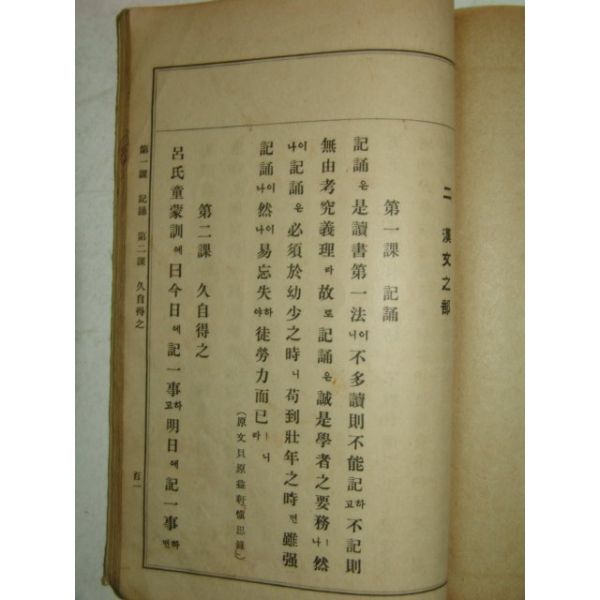 二 漢文之部
第一課 記誦
記誦은是讀書第一法이니不多讀則不能記하고不記則
無由考究義理라故로記誦은誠是學者之要務ㅣ나然
이나記誦은必須於幼少之時니苟到壯年之時면雖强
記誦이나然이나易忘失하야徒勞力而已ㅣ니라
(原文貝原益軒愼思錄)
第二課 久自得之
呂氏童蒙訓에曰今日에記一事하고明日에記一事하면
第一課 記誦 第二課 久自得之
百一